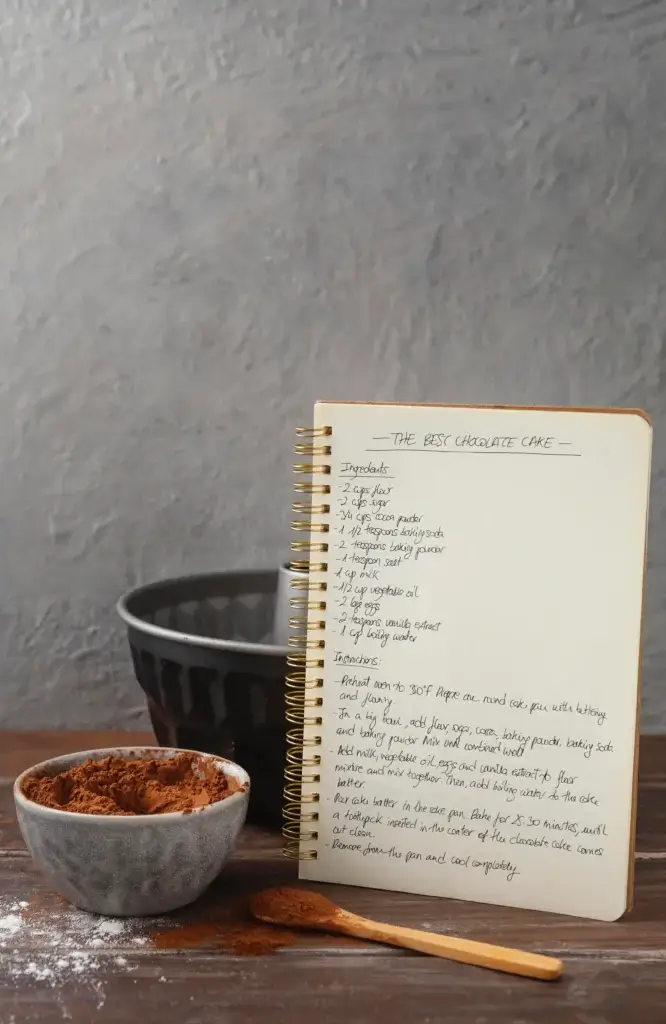 — THE BEST CHOCOLATE CAKE —
Ingredients:
- 2 cups flour
- 2 cups sugar
- 3/4 cups cocoa powder
- 1 1/2 teaspoons baking soda
- 2 teaspoons baking powder
- 1 teaspoon salt
1 cup milk
- 1/2 cup vegetable oil
- 2 large eggs
- 2 teaspoons vanilla extract
- 1 cup boiling water
Instructions:
- Preheat oven to 350°F Prepare one round cake pan with buttering
and flouring
- In a big bowl, add flour, sugar, cocoa, baking powder, baking soda
and baking powder Mix until combined well
- Add milk, vegetable oil, eggs and vanilla extract to flour
mixture and mix together. Then, add boiling water to the cake
batter
- Pour cake batter in the cake pan. Bake for 25-30 minutes, until
a toothpick inserted in the center of the chocolate cake comes
out clean
- Remove from the pan and cool completely